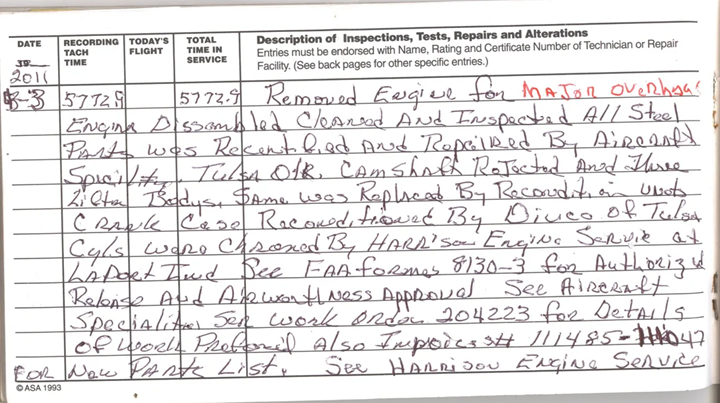 DATE RECORDING TACH TIME TODAY'S FLIGHT TOTAL TIME IN SERVICE Description of Inspections, Tests, Repairs and Alterations
Entries must be endorsed with Name, Rating and Certificate Number of Technician or Repair
Facility. (See back pages for other specific entries.)
2011
8-3 5772.9 5772.9 Removed Engine for MAJOR Overhau
Engine Dissambled Cleaned And Inspected All Steel
Parts was Recertified And Repaired By Aircraft
Speciality, Tulsa Olk. Camshaft Rejected And Three
Lifter Bodys, Same was Replaced By Recondition units
Crank Case Reconditioned By Divco of Tulsa
Cyls were Chromed By HARRison Engine Servie at
LAPort Ind See FAA formes 8130-3 for Authorized
Release And Airworthness Approval See Aircraft
Specialities Ser work Order 204223 for Details
Of Work Preformed Also Invoices# 111485-047
FOR New Parts List. See HARRison Engine Service
© ASA 1993